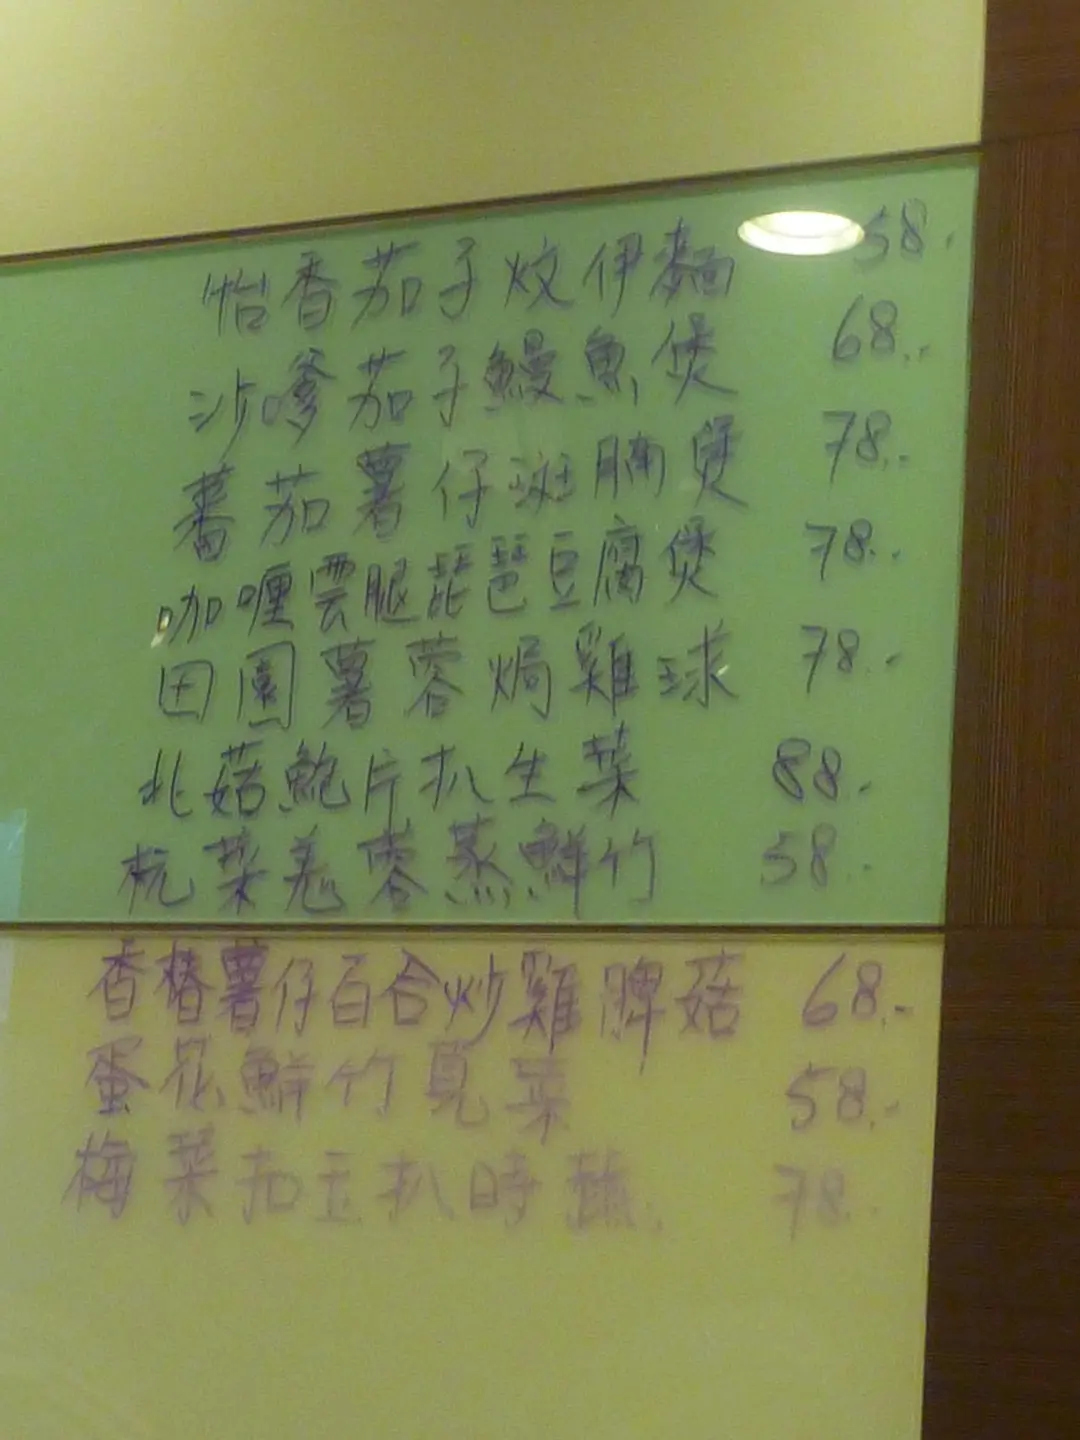 怡香茄子炆伊麵 58.-
沙嗲茄子鰻魚煲 68.-
蕃茄薯仔斑腩煲 78.-
咖喱雲腿琵琶豆腐煲 78.-
田園薯蓉焗雞球 78.-
北菇鮑片扒生菜 88.-
菜羌蓉蒸鮮竹 58.-
香椿薯仔百合炒雞脾菇 68.-
蛋花鮮竹莧菜 58.-
梅菜扒時蔬 78.-